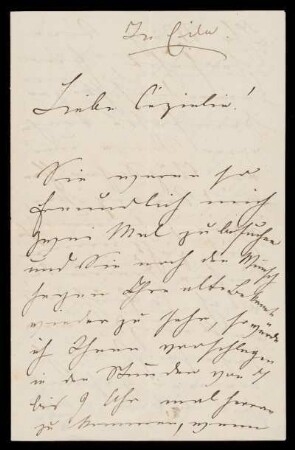 In Eile.
Liebe Cäzielie!
Sie waren so
freundlich mich
zwei Mal zu besuchen
und Sie noch den Wunsch
hegen Ihre alte Bekannte
wieder zu sehen, so würde
ich Ihnen vorschlagen
in der Stunde von
bis 9 Uhr mal herran
zu kommen, wenn